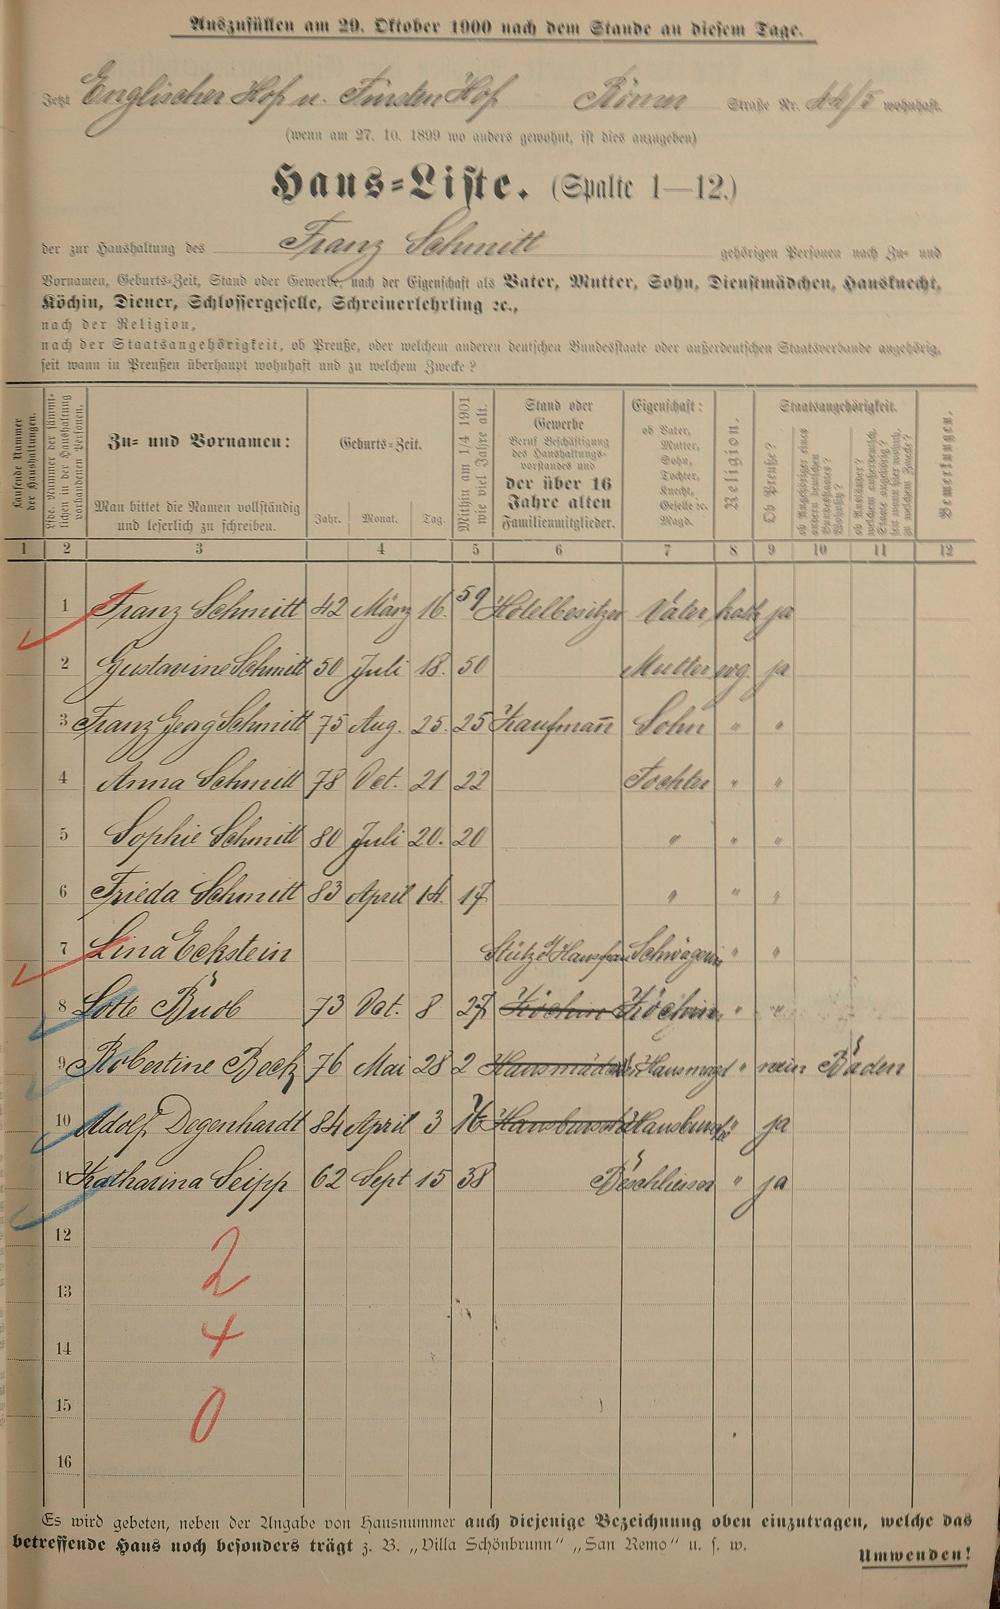 Auszufüllen am 29. Oktober 1900 nach dem Stande an diesem Tage.
Jetzt Englischer Hof u. Fürsten Hof Römer Straße Nr. 44/5 wohnhaft.
(wenn am 27. 10. 1899 wo anders gewohnt, ist dies anzugeben)
Haus-Liste. (Spalte 1—12.)
der zur Haushaltung des Franz Schmitt gehörigen Personen nach Zu- und
Vornamen, Geburts-Zeit, Stand oder Gewerbe, nach der Eigenschaft als Vater, Mutter, Sohn, Dienstmädchen, Hausknecht,
Köchin, Diener, Schlossergeselle, Schreinerlehrling ꝛc.,
nach der Religion,
nach der Staatsangehörigkeit, ob Preuße, oder welchem anderen deutschen Bundesstaate oder außerdeutschen Staatsverbande angehörig,
seit wann in Preußen überhaupt wohnhaft und zu welchem Zwecke?
Laufende Nummer der Haushaltungen.
Lfde. Nummer der sämmtlichen in der Haushaltung vorhandenen Personen.
Zu- und Vornamen:
Man bittet die Namen vollständig
und leserlich zu schreiben.
Geburts-Zeit.
Jahr. Monat. Tag.
Mithin am 1/4 1901
wie viel Jahre alt.
Stand oder
Gewerbe
Beruf Beschäftigung
des Haushaltungs-
vorstandes und
der über 16
Jahre alten
Familienmitglieder.
Eigenschaft:
ob Vater,
Mutter,
Sohn,
Tochter,
Knecht,
Geselle ꝛc.
Magd.
Religion.
Staatsangehörigkeit.
Ob Preuße?
ob Angehöriger eines
andern deutschen
Bundesstaates?
Welches?
ob Ausländer?
welchem außerdeutsch.
Staate angehörig?
seit wann hier wohnh.
zu welchem Zwecke?
Bemerkungen.
1 2 3 4 5 6 7 8 9 10 11 12
1 Franz Schmitt 42 März 16. 59 Hotelbesitzer Vater kath ja
2 Gustavine Schmitt 50 Juli 18. 50 Mutter evg. ja
3 Franz Georg Schmitt 75 Aug. 25. 25 Kaufmañ Sohn " "
4 Anna Schmitt 78 Oct. 21 22 Tochter " "
5 Sophie Schmitt 80 Juli 20. 20 " " "
6 Frieda Schmitt 83 April 14. 17 " " "
7 Lina Eckstein Stütze d Hausfrau Schwägerin " "
8 Lotte 73 Oct. 8 27 Köchin Köchin "
9 Robertine Beck 76 Mai 28 2 Hausmädchen Hausmagd " nein Baden
10 Adolf Degenhardt 84 April 3 16 Hausbursche Hausbursche " ja
11 Katharina Seipp 62 Sept 15 38 Beschliesserin " ja
12
2
13
14
4
15
0
16
Es wird gebeten, neben der Angabe von Hausnummer auch diejenige Bezeichnung oben einzutragen, welche das
betreffende Haus noch besonders trägt z. B. „Villa Schönbrunn" „San Remo" u. s. w.
Umwenden!